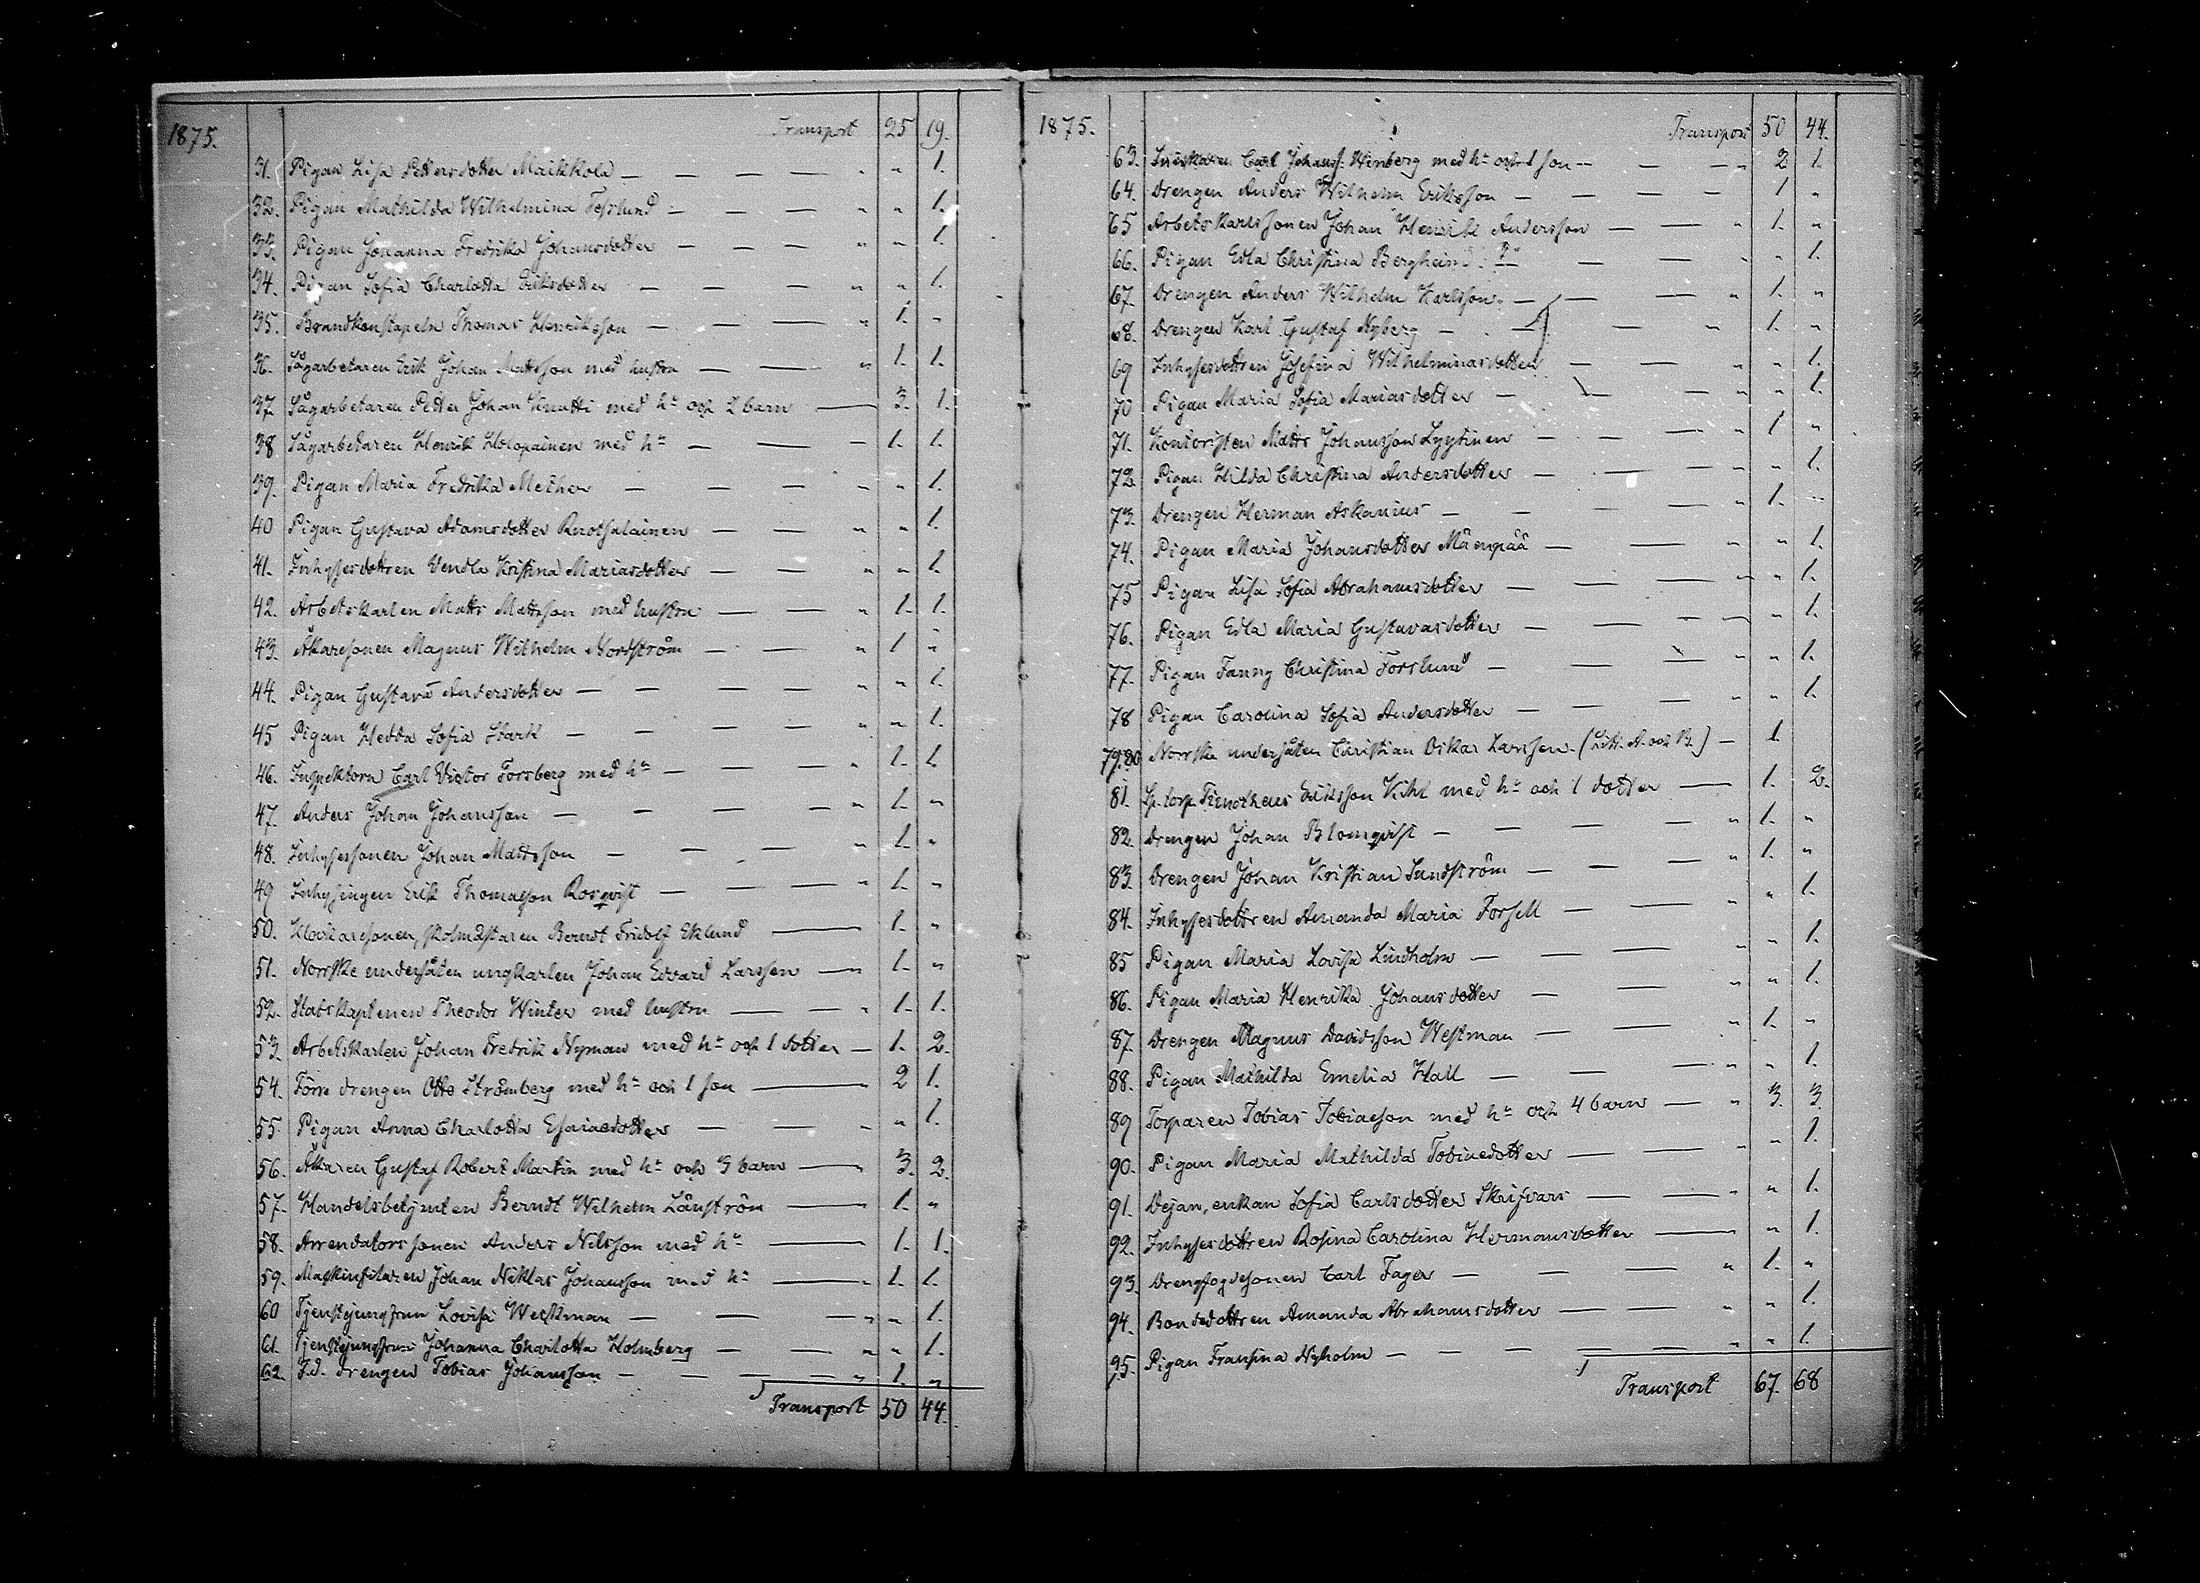 1875. Transport 25 19.
31. Pigan Lisa Pettersdotter Maikkola — — — — " " 1.
32. Pigan Mathilda Wilhelmina Feslund — — — — " " 1.
33. Pigan Johanna Fredrika Johansdotter — — — — " " 1.
34. Pigan Sofia Charlotta Eriksdotter — — — — " " 1.
35. Brandkonstapeln Thomas Henriksson — — — " 1. "
36. Sågarbetaren Erik Johan Mattsson med hustru — — " 1. 1.
37. Sågarbetaren Petter Johan Knutti med hu och 2 barn — 3. 1.
38 Sågarbetaren Henrik Holopainen med hu — — — 1. 1.
39. Pigan Maria Fredrika Meiher — — — " " 1.
40 Pigan Gustava Adamsdotter Ruothalainen — — " " 1.
41. Inhysesdottren Vendla Kristina Mariasdotter — — " " 1.
42. Arbetskarlen Matts Mattsson med hustru — — " 1. 1.
43. Åkaresonen Magnus Wilhelm Nordström — — " 1 "
44. Pigan Gustava Andersdotter — — — — " " 1.
45 Pigan Hedda Sofia Stark — — — — " " 1.
46. Inspektorn Carl Victor Forsberg med hu — — — " 1. 1.
47. Anders Johan Johansson — — — — " 1. "
48. Inhysessonen Johan Mattsson — — — — " 1. "
49 Inhysingen Erik Thomasson Rosqvist — — — " 1. "
50. Klockaresonen, skolmästaren Berndt Fridolf Eklund — 1. "
51. Norrske undersåten ungkarlen Johan Edvard Larssen — " 1. "
52. Stabskaptenen Theodor Winter med hustru — — " 1. 1.
53. Arbetskarlen Johan Fredrik Nyman med hu och 1 dotter — 1. 2.
54. Förre drengen Otto Strömberg med hu och 1 son — " 2 1.
55 Pigan Anna Charlotta Esaiaedotter — — — " " 1.
56. Åkaren Gustaf Robert Martin med hu och 3 barn — " 3. 2.
57. Handelsbetjenten Berndt Wilhelm Länström — " 1. "
58. Arrendatorssonen Anders Nilsson med hu — — 1. 1.
59. Maskinfilaren Johan Niklas Johansson med hu — " 1. 1.
60 Tjenstejungfrun Lovisa Weckman — — — " " 1.
61. Tjenstejungfrun Johanna Charlotta Holmberg — — " " 1.
62. F.d. drengen Tobias Johansson — — — — " 1. "
Transport 50 44.
1875. Transport 50 44.
63. Carl Johanss. Winberg med hu och 1 son — — — " 2 1.
64. Drengen Anders Wilhelm Eriksson — — — — 1 "
65 Arbetskarlssonen Johan Henrik Andersson — — " 1. "
66. Pigan Edla Christina — — " " 1.
67. Drengen Anders Wilhelm Karlsson — — — " 1. "
68. Drengen Karl Gustaf Nyberg — — — " 1. "
69 Inhysesdottren Josefina Wilhelminasdotter — — " " 1.
70 Pigan Maria Sofia Mariasdotter — — — " " 1.
71. Kontoristen Matts Johansson Lyytinen — — — " 1 "
72. Pigan Hilda Christina Andersdotter — — — " " 1.
73. Drengen Herman Askanius — — — — " 1. "
74. Pigan Maria Johansdotter Mäenpää — — — " " 1.
75 Pigan Lisa Sofia Abrahamsdotter — — — " " 1.
76. Pigan Edla Maria Gustavasdotter — — — " " 1.
77. Pigan Fanny Christina Forslund — — — " " 1.
78 Pigan Carolina Sofia Andersdotter — — — " " 1.
79.80 Norrske undersåten Christian Oskar Larssen. (Litt. A. och B.) — 1
81. Sp. torp. Timotheus Eriksson Kihl med hu och 1 dotter — 1. 2.
82. Drengen Johan Blomqvist — — — — " 1. "
83. Drengen Johan Kristian Sundström — — — " 1. "
84. Inhysesdottren Amanda Maria Forsell — — — " 1.
85 Pigan Maria Lovisa Lindholm — — — " " 1.
86. Pigan Maria Henrika Johansdotter — — — " " 1.
87. Drengen Magnus Davidsson Westman — — — " 1. "
88. Pigan Mathilda Emelia Hall — — — — " " 1.
89 Torparen Tobias Tobiaeson med hu och 4 barn — " 3. 3.
90. Pigan Maria Mathilda Tobiaedotter — — — " " 1.
91. Dejan, enkan Sofia Carlsdotter Skrifvars — — " " 1.
92. Inhysesdottren Rosina Carolina Hermansdotter — " 1.
93. Drengfogdesonen Carl Fager — — — " 1. "
94. Bondedottren Amanda Abrahamsdotter — — " " 1.
95. Pigan Fransina Nyholm — — — — — " " 1.
Transport 67. 68